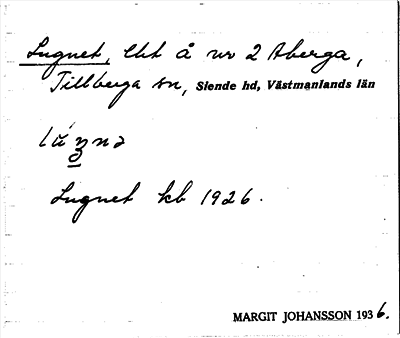 Lugnet, lht å nr 2 Åberga,
Tillberga sn, Siende hd, Västmanlands län
Lugnet kb 1926.
MARGIT JOHANSSON 1936.